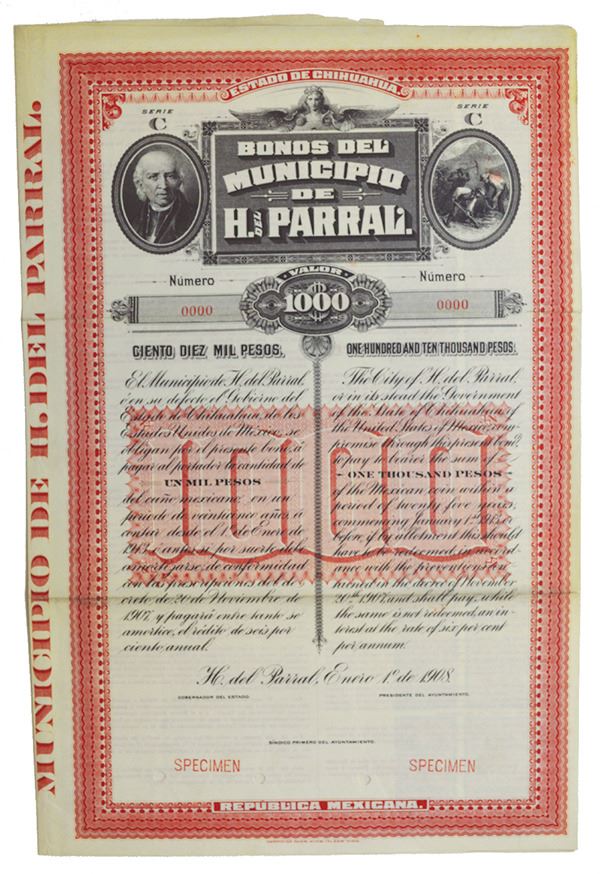 MUNICIPIO DE H. DEL PARRAL.
ESTADO DE CHIHUAHUA.
SERIE
C
SERIE
C
BONOS DEL
MUNICIPIO
DE
H. DEL PARRAL.
Número
VALOR
Número
0000
$1000
0000
CIENTO DIEZ MIL PESOS,
El Municipio de H. del Parral,
ó en su defecto el Gobierno del
Estado de Chihuahua, de los
Estados Unidos de México, se
obligan por el presente bono, á
pagar al portador la cantidad de
UN MIL PESOS
del cuño mexicano en un
período de veinticinco años, á
contar desde el 1º de Enero de
1913, ó antes si por suerte del
amortizarse, de conformidad
con las del de-
creto de 20 de Noviembre de
1907, y pagará entre tanto se
amortice, el rédito de seis por
ciento anual.
ONE HUNDRED AND TEN THOUSAND PESOS,
The City of H. del Parral,
or in its stead the Government
of the State of Chihuahua of
the United States of Mexico, com-
promise through the present bond
to pay to bearer the sum of
ONE THOUSAND PESOS
of the Mexican coin within a
period of twenty five years,
commencing January 1st 1913, or
before, if by allotment this should
have to be redeemed, in accord-
ance with the preventions con-
tained in the decree of November
20th 1907, and shall pay, while
the same is not redeemed, an in-
terest at the rate of six per cent
per annum.
H. del Parral, Enero 1º de 1908.
GOBERNADOR DEL ESTADO.
PRESIDENTE DEL AYUNTAMIENTO.
SÍNDICO PRIMERO DEL AYUNTAMIENTO.
SPECIMEN
SPECIMEN
REPÚBLICA MEXICANA.